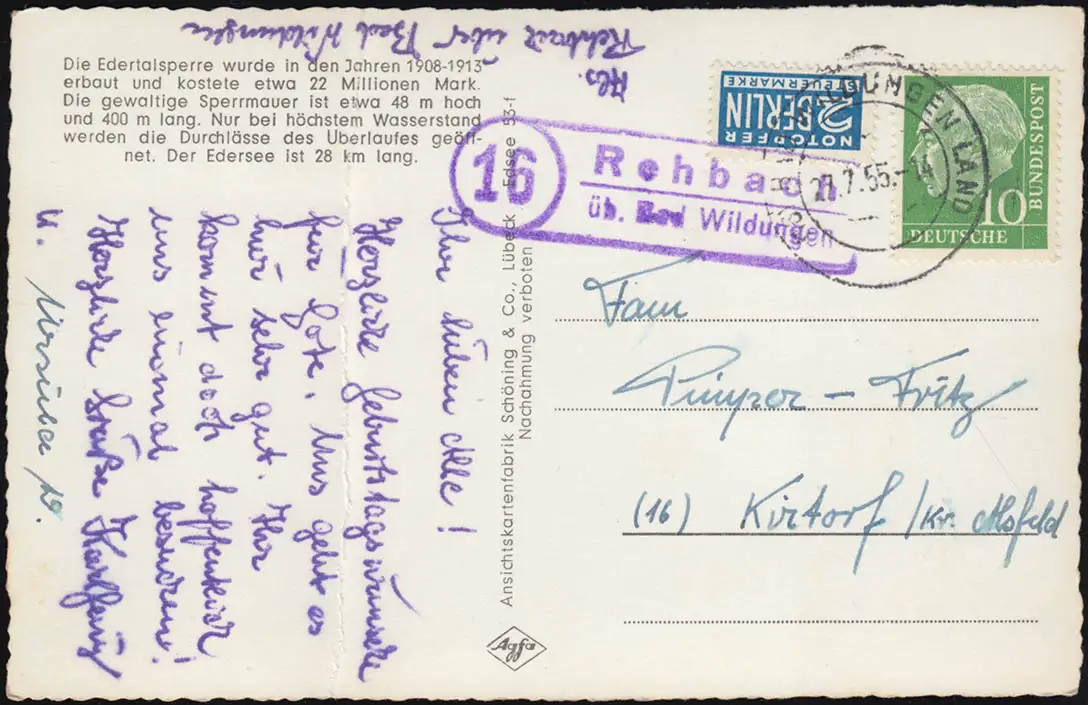 Abs.
Rehbach über Bad Wildungen
Die Edertalsperre wurde in den Jahren 1908-1913
erbaut und kostete etwa 22 Millionen Mark.
Die gewaltige Sperrmauer ist etwa 48 m hoch
und 400 m lang. Nur bei höchstem Wasserstand
werden die Durchlässe des Überlaufes geöff-
net. Der Edersee ist 28 km lang.
Ihr lieben Alle!
Herzliche Geburtstagswünsche
für Gote. Uns geht es
hier sehr gut. Ihr
kommt doch hoffentlich
uns einmal besuchen!
Herzliche Grüße
u.
Ansichtskartenfabrik Schöning & Co., Lübeck Edsee 53-f
Nachahmung verboten
Agfa
16
Rehbach
üb. Bad Wildungen
NOTOPFER
2 BERLIN
STEUERMARKE
WILDUNGEN LAND
7.55.-14
10
DEUTSCHE
BUNDESPOST
Fam
Pimper - Fritz
(16) Kirtorf / Kr. Alsfeld